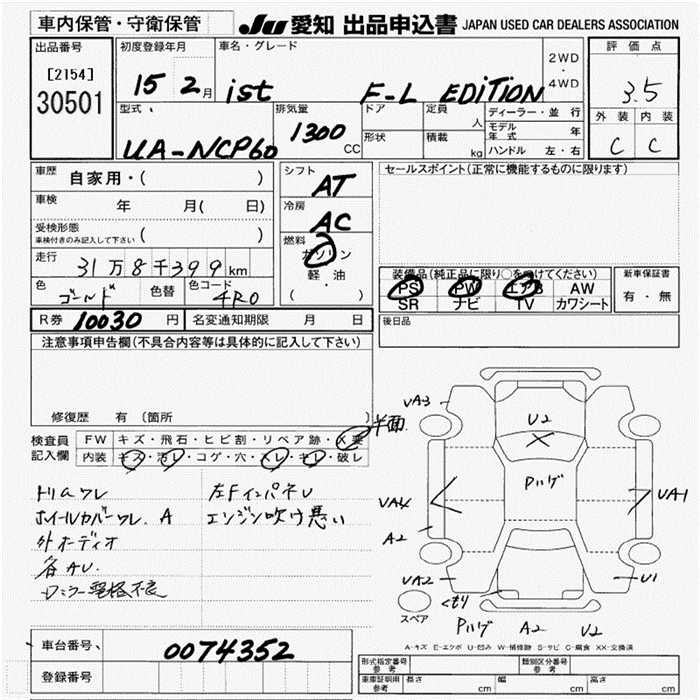 車内保管・守衛保管
JU 愛知 出品申込書 JAPAN USED CAR DEALERS ASSOCIATION
出品番号
[2154]
30501
初度登録年月
15 2月
車名・グレード
ist F-L EDITION
2WD
・
4WD
評価点
3.5
外装 内装
C C
型式
UA-NCP60
排気量
1300 CC
ドア
形状
定員 人
積載 kg
ディーラー・並行
モデル年式 年
ハンドル 左・右
車歴 自家用・( )
車検 年 月( 日)
受検形態
車検付きのみ記入して下さい ( )
走行 31万8千399km
色 ゴールド 色替 色コード 4R0
シフト AT
冷房 AC
燃料 ガソリン
軽・油
( ・ )
セールスポイント(正常に機能するものに限ります)
装備品(純正品に限り○をつけてください)
PS PW エアB AW
SR ナビ TV カワシート
新車保証書
有・無
R券 10030 円 名変通知期限 月 日
後日品
注意事項申告欄(不具合内容等は具体的に記入して下さい)
修復歴 有 〔箇所 〕
検査員記入欄
FW キズ・飛石・ヒビ割・リペア跡・X要
内装 キズ・汚レ・コゲ・穴・スレ・キレ・破レ
半面
トリムワレ
ホイールカバーワレ. A
外オーディオ
各AU.
左FインパネU
エンジン吹け悪い
UA3
U2
Pハゲ
UA4
UA1
A2
UA2
U1
くもり
スペア
Pハゲ A2 U2
A-キズ E-エクボ U-凹み W-補修跡 S-サビ C-腐食 XX-交換済
車台番号 0074352
登録番号
型式指定番号 参考
類別区分番号 参考
車庫証明用 参考 長さ cm 幅 cm 高さ cm